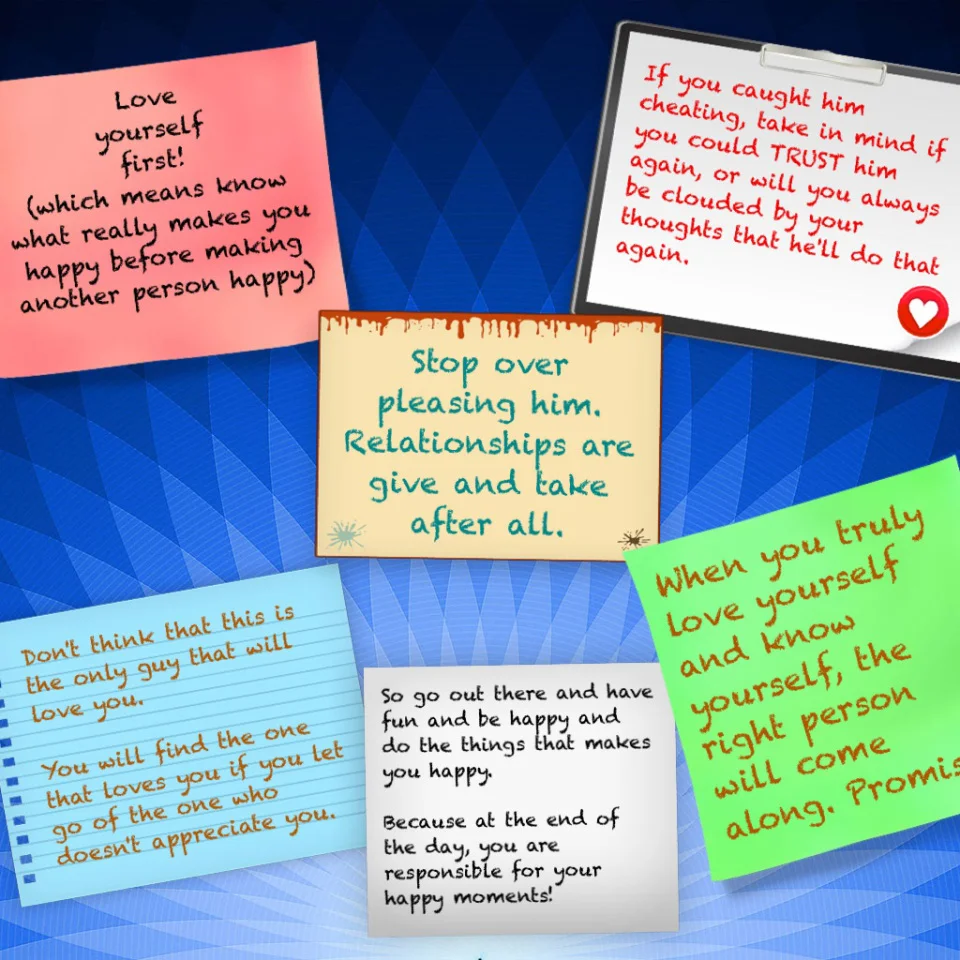 Love
yourself
first!
(which means know
what really makes you
happy before making
another person happy)
If you caught him
cheating, take in mind if
you could TRUST him
again, or will you always
be clouded by your
thoughts that he'll do that
again.
Stop over
pleasing him.
Relationships are
give and take
after all.
Don't think that this is
the only guy that will
love you.
You will find the one
that loves you if you let
go of the one who
doesn't appreciate you.
So go out there and have
fun and be happy and
do the things that makes
you happy.
Because at the end of
the day, you are
responsible for your
happy moments!
When you truly
love yourself
and know
yourself, the
right person
will come
along. Promis